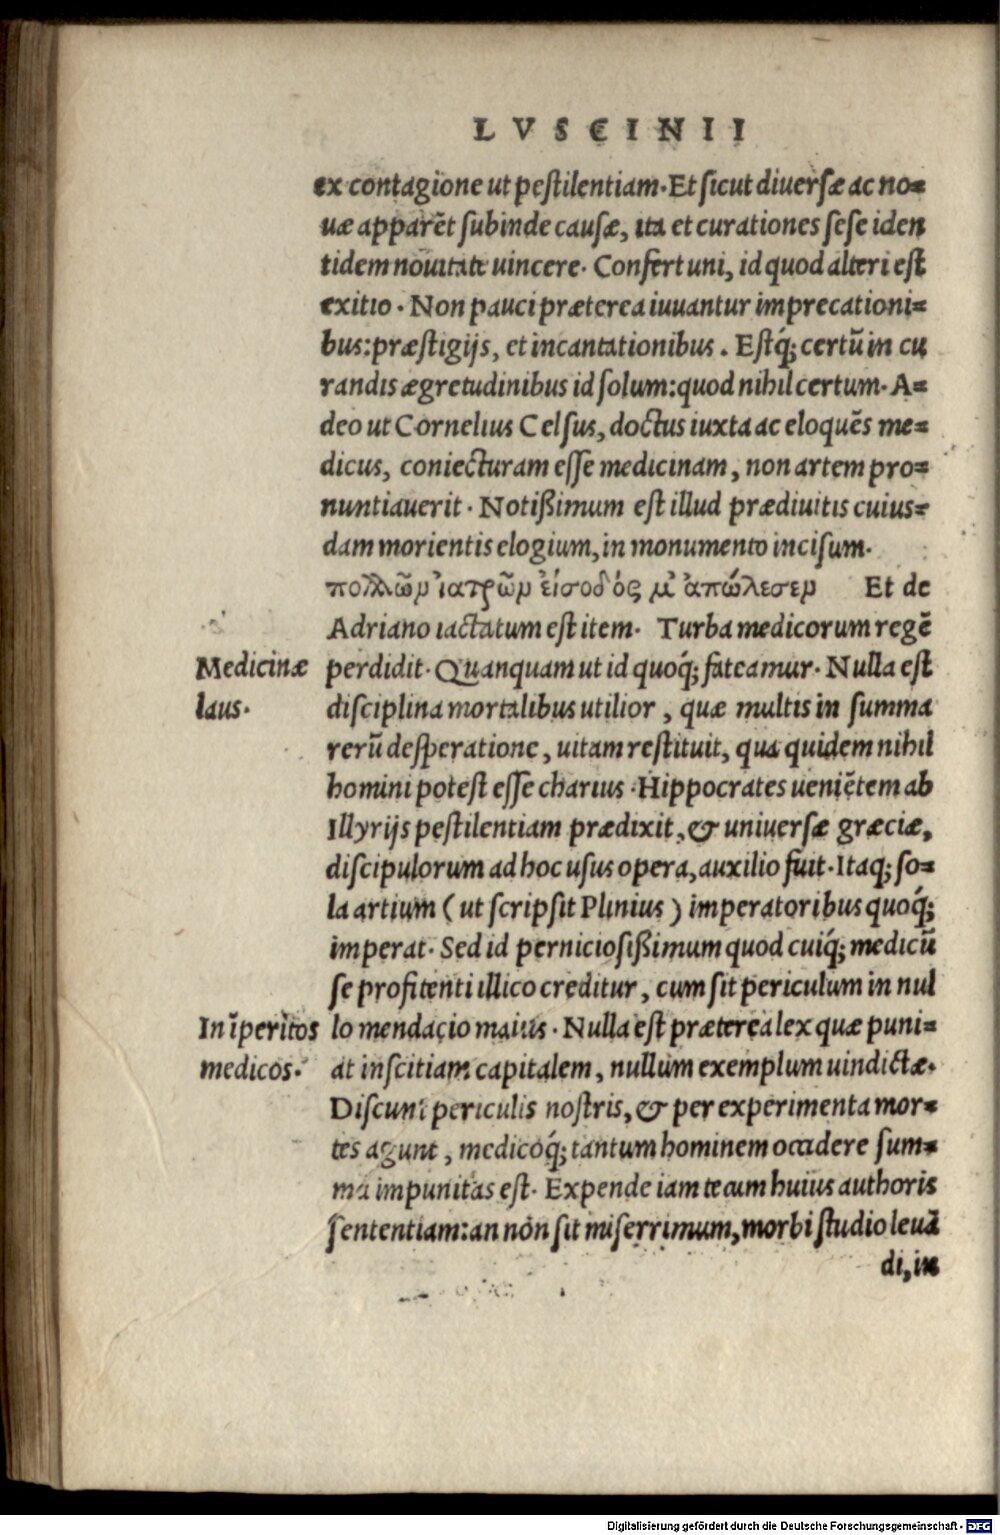 LVSCINII
ex contagione ut pestilentiam. Et sicut diuersæ ac no=
uæ apparēt subinde causæ, ita et curationes sese iden
tidem nouitate uincere. Confert uni, id quod alteri est
exitio. Non pauci præterea iuuantur imprecationi=
bus: præstigijs, et incantationibus. Estq́; certū in cu
randis ægretudinibus id solum: quod nihil certum. A=
deo ut Cornelius Celsus, doctus iuxta ac eloquēs me=
dicus, coniecturam esse medicinam, non artem pro=
nuntiauerit. Notißimum est illud prædiuitis cuius=
dam morientis elogium, in monumento incisum.
πολλῶν ἰατρῶν εἴσοδός μ' ἀπώλεσεν Et de
Adriano iactatum est item. Turba medicorum regē
Medicinæ perdidit. Quanquam ut id quoq́; fateamur. Nulla est
laus. disciplina mortalibus utilior, quæ multis in summa
rerū desperatione, uitam restituit, qua quidem nihil
homini potest esse charius. Hippocrates ueniētem ab
Illyrijs pestilentiam prædixit, & uniuersæ græciæ,
discipulorum ad hoc usus opera, auxilio fuit. Itaq; so=
la artium (ut scripsit Plinius) imperatoribus quoq́;
imperat. Sed id perniciosißimum quod cuiq́; medicū
se profitenti illico creditur, cum sit periculum in nul
In īperitos lo mendacio maius. Nulla est præterea lex quæ puni=
medicos. at inscitiam capitalem, nullum exemplum uindictæ.
Discunt periculis nostris, & per experimenta mor=
tes agunt, medicoq́; tantum hominem occidere sum=
ma impunitas est. Expende iam tecum huius authoris
sententiam: an non sit miserrimum, morbi studio leuā
di, in
Digitalisierung gefördert durch die Deutsche Forschungsgemeinschaft - DFG